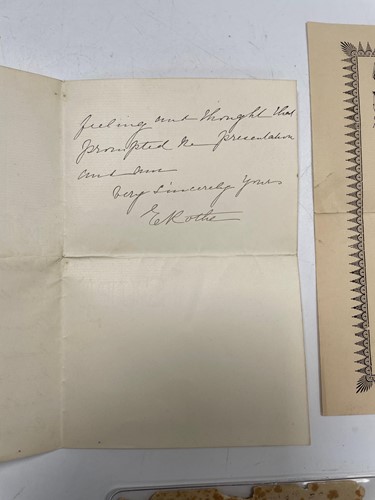 feeling and thought that
prompted the presentation
and am
Very Sincerely Yours
E Rothe